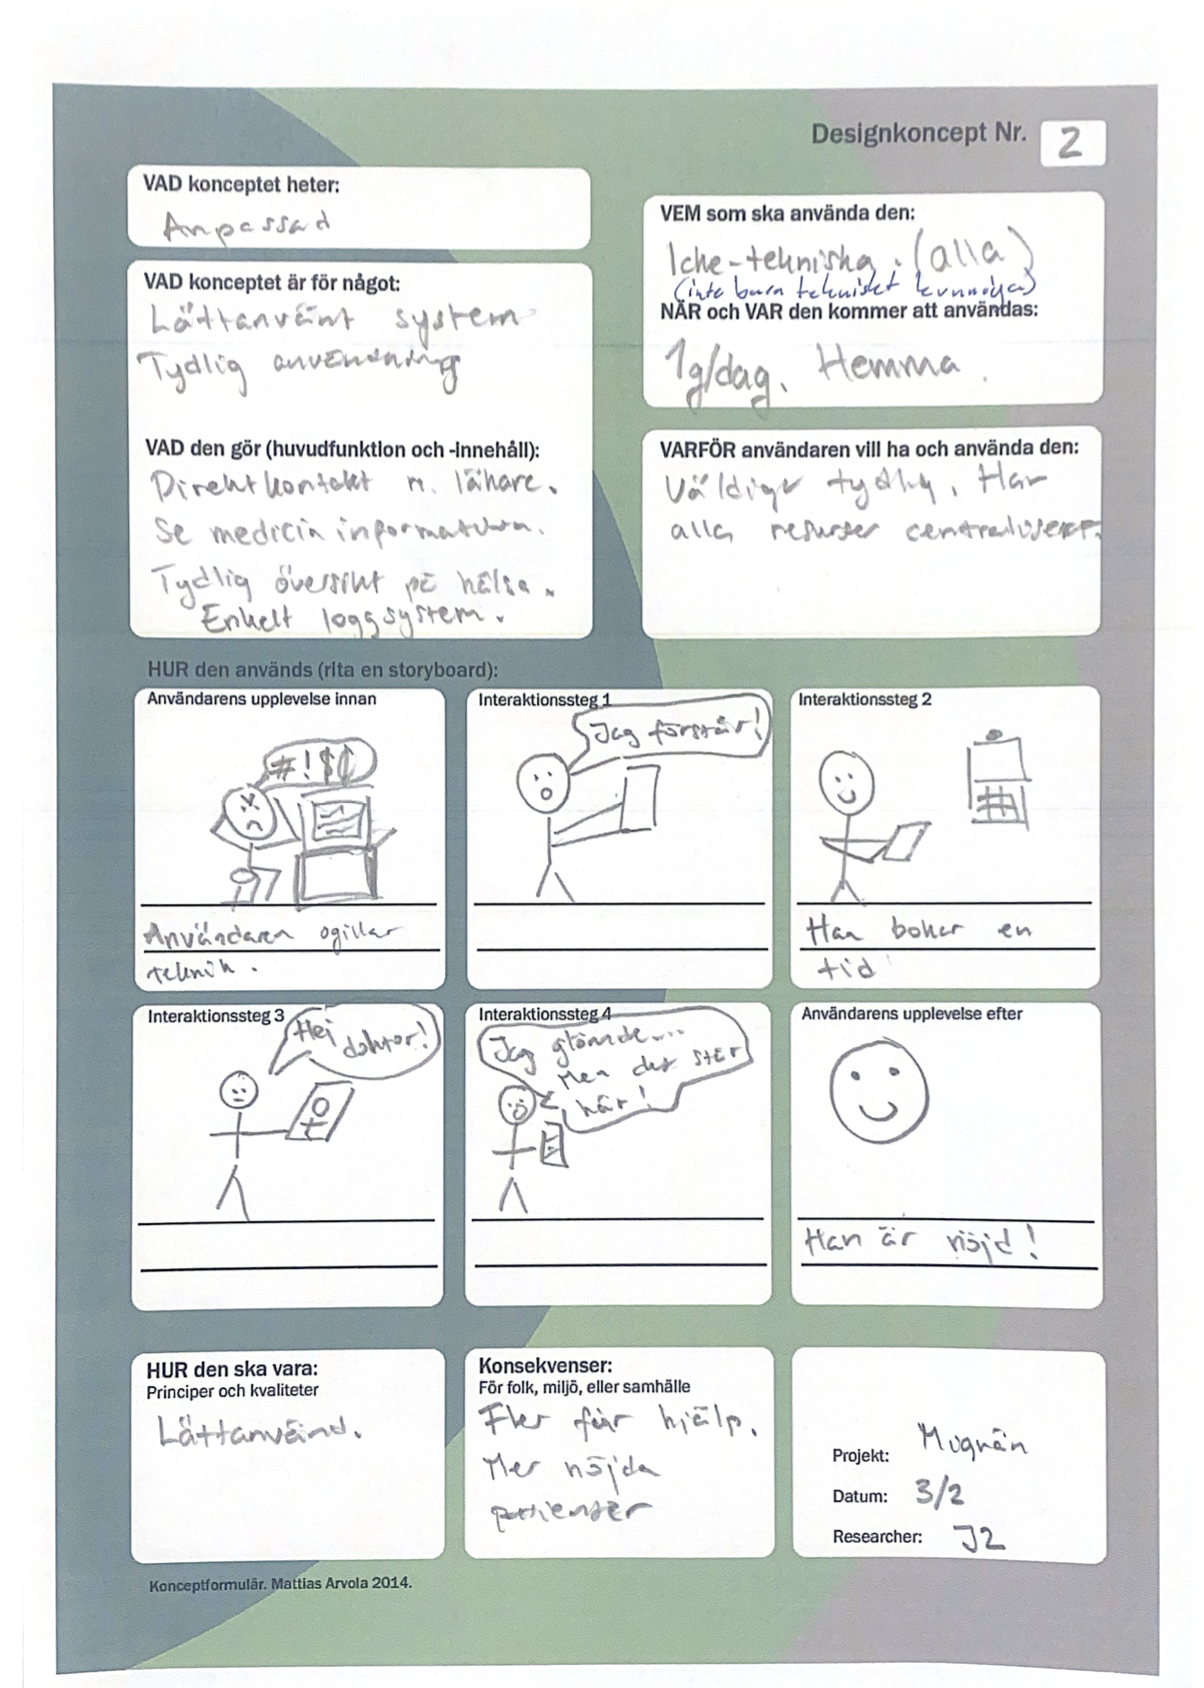 Designkoncept Nr. 2
VAD konceptet heter:
Anpassad
VAD konceptet är för något:
Lättanvänt system
Tydlig användning
VAD den gör (huvudfunktion och -innehåll):
Direktkontakt m. läkare.
Se medicin information.
Tydlig översikt på hälsa.
Enkelt loggsystem.
VEM som ska använda den:
Icke-tekniska. (alla)
(inte bara tekniskt kunniga)
NÄR och VAR den kommer att användas:
1g/dag. Hemma.
VARFÖR användaren vill ha och använda den:
Väldigt tydlig. Har
alla resurser centraliserat.
HUR den används (rita en storyboard):
Användarens upplevelse innan
#!$₵
Användaren ogillar
teknik.
Interaktionssteg 1
Jag förstår!
Interaktionssteg 2
Han bokar en
tid
Interaktionssteg 3
Hej
doktor!
Interaktionssteg 4
Jag glömde...
Men det står
här!
Användarens upplevelse efter
Han är nöjd!
HUR den ska vara:
Principer och kvaliteter
Lättanvänd.
Konsekvenser:
För folk, miljö, eller samhälle
Fler får hjälp.
Mer nöjda
patienter
Projekt: Migrän
Datum: 3/2
Researcher: J2
Konceptformulär. Mattias Arvola 2014.